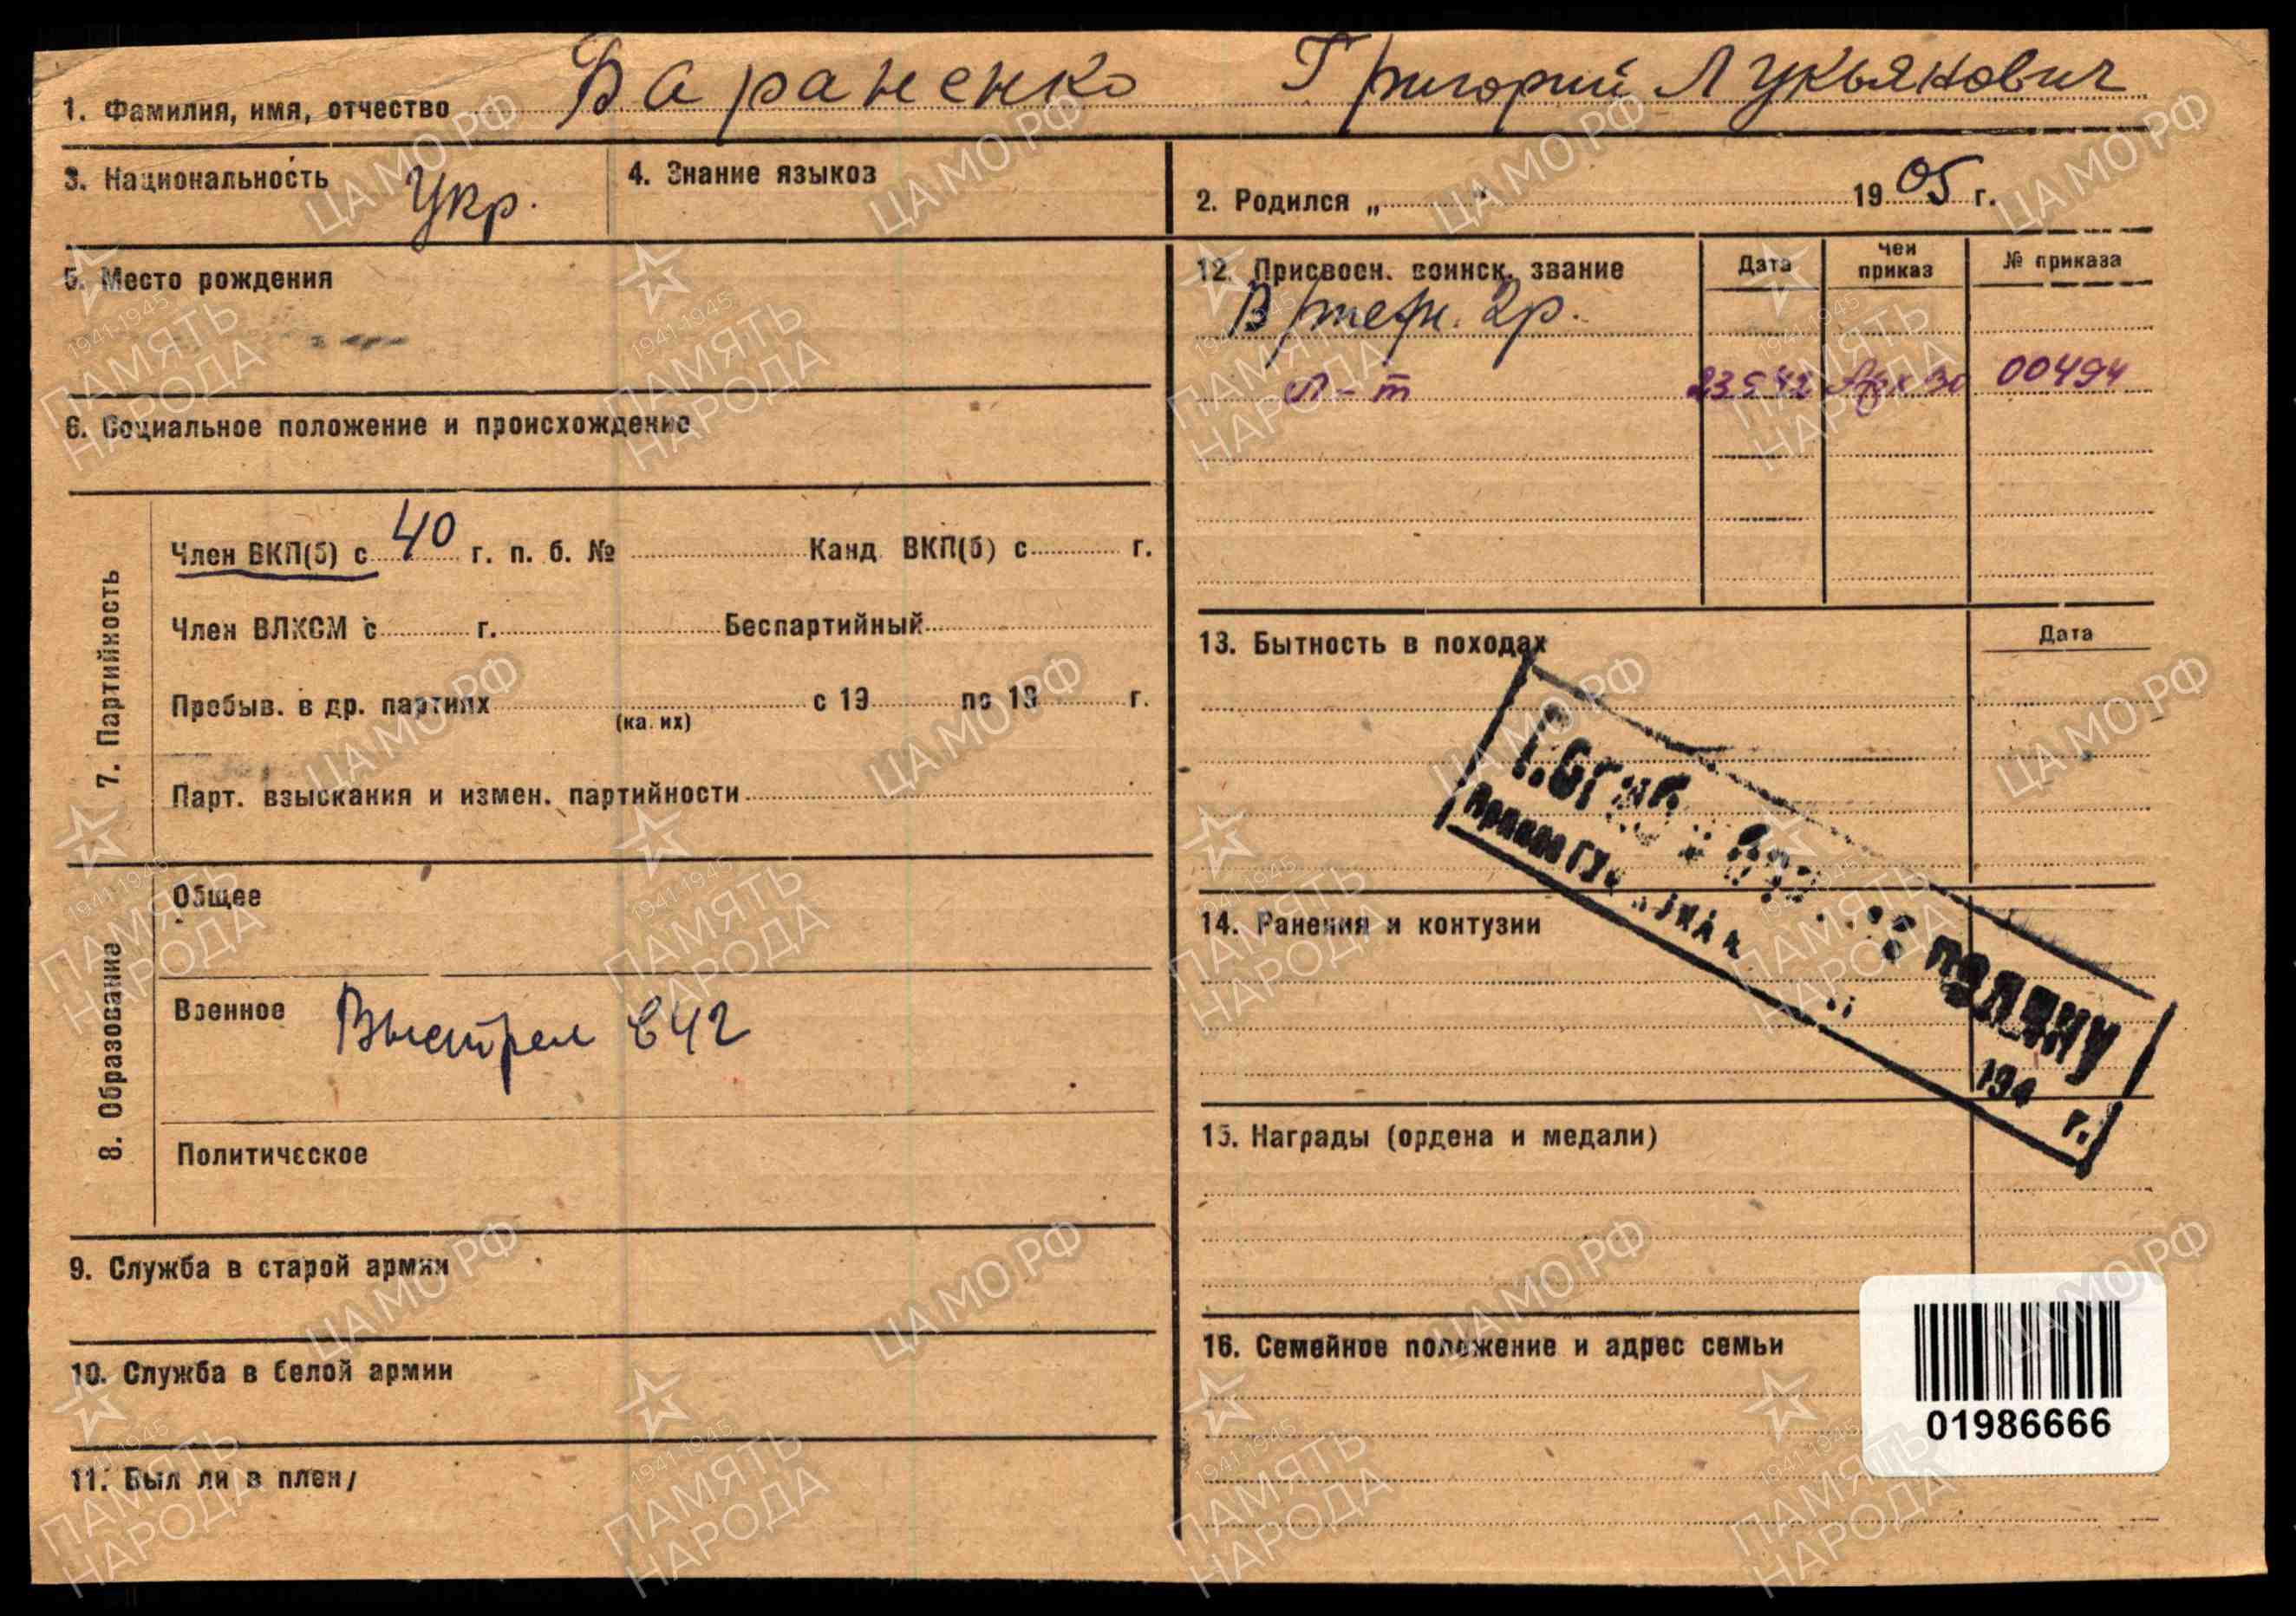 1. Фамилия, имя, отчество Бараненко Григорий Лукьянович
3. Национальность Укр.
4. Знание языков
2. Родился „ " 1905 г.
5. Место рождения
12. Присвоен. воинск. звание
Дата
чей приказ
№ приказа
В/техн. 2р.
Л-т 23 5 42 00494
6. Социальное положение и происхождение
7. Партийность
Член ВКП(б) с 40 г. п. б. № Канд ВКП(б) с г.
Член ВЛКСМ с г. Беспартийный
Пребыв. в др. партиях с 19 по 19 г.
(каких)
Парт. взыскания и измен. партийности
13. Бытность в походах
Дата
8. Образование
Общее
Военное Выстрел в 42
Политическое
14. Ранения и контузии
Приказ ГУ
подлину
194 г.
15. Награды (ордена и медали)
9. Служба в старой армии
10. Служба в белой армии
11. Был ли в плену
16. Семейное положение и адрес семьи
01986666
ЦАМО.РФ
1941-1945
ПАМЯТЬ
НАРОДА